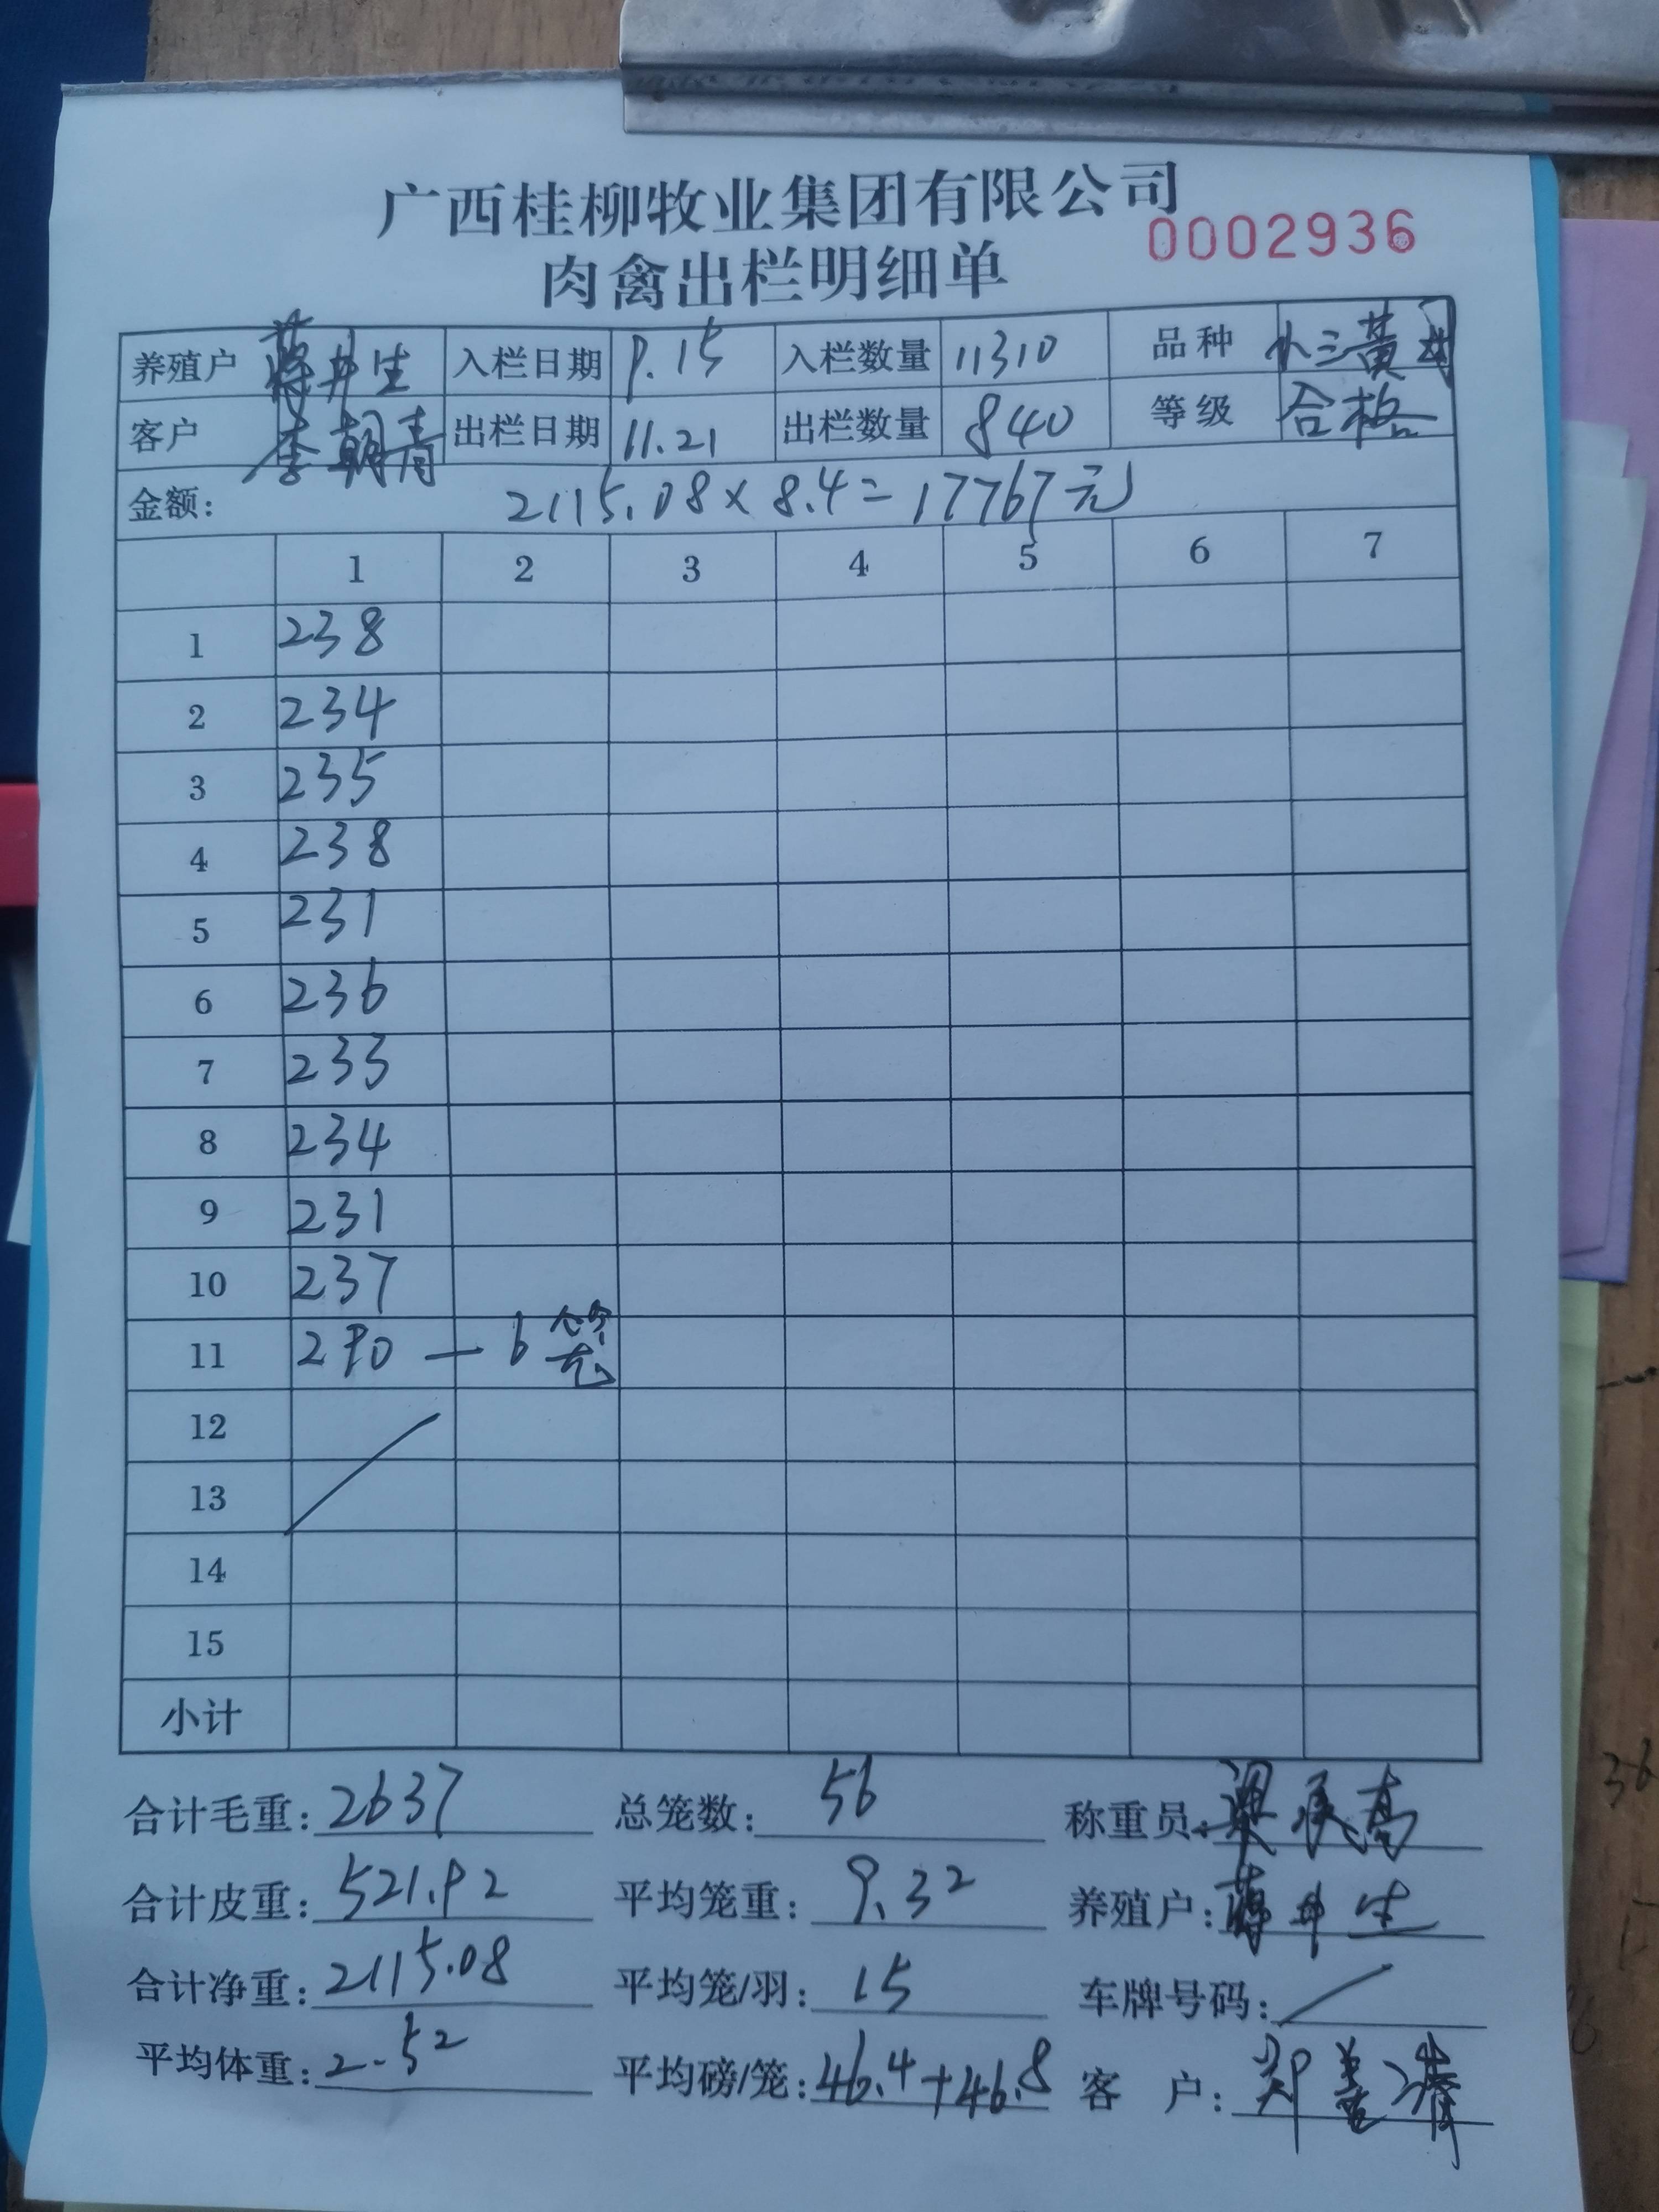 广西桂柳牧业集团有限公司
肉禽出栏明细单
0002936
养殖户 蒋井生 入栏日期 9.15 入栏数量 11310 品种 小三黄
客户 李朝青 出栏日期 11.21 出栏数量 840 等级 合格
金额: 2115.08×8.4=17767元
1 2 3 4 5 6 7
1 238
2 234
3 235
4 238
5 231
6 236
7 233
8 234
9 231
10 237
11 290 — 6笼
12
13
14
15
小计
合计毛重: 2637 总笼数: 56 称重员: 梁
合计皮重: 521.92 平均笼重: 9.32 养殖户: 蒋井生
合计净重: 2115.08 平均笼/羽: 15 车牌号码: /
平均体重: 2.52 平均磅/笼: 46.4+46.8 客 户: 郑